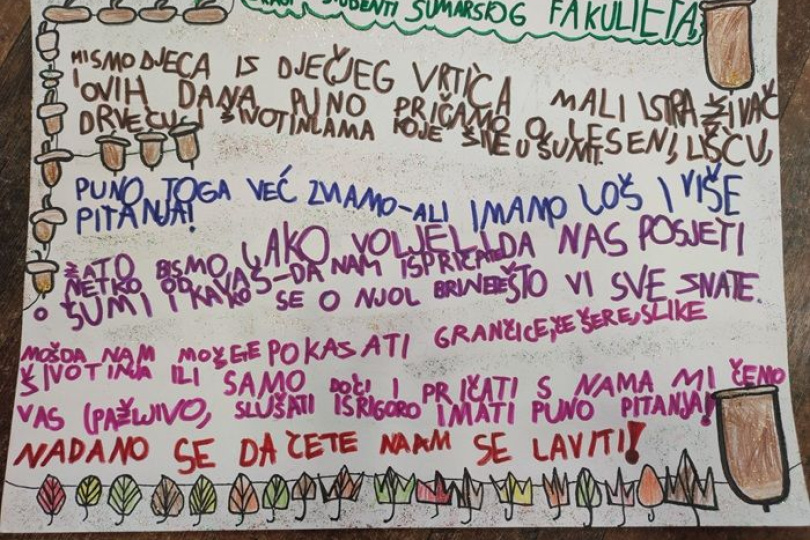 DRAGI STUDENTI ŠUMARSKOG FAKULTETA,
MI SMO DJECA IS DJEČJEG VRTIĆA MALI ISTRAŽIVAČ
I OVIH DANA PUNO PRIČAMO O JESENI, LIŠĆU,
DRVEĆU I ŽIVOTINJAMA KOJE ŽIVE U ŠUMI.
PUNO TOGA VEĆ ZNAMO-ALI IMAMO JOŠ I VIŠE
PITANJA!
ZATO BISMO JAKO VOLJELI DA NAS POSJETI
NETKO OD VAS-DA NAM ISPRIČATE
O ŠUMI I KAKO SE O NJOJ BRINETE ŠTO VI SVE SNATE.
MOŠDA NAM MOŽETE POKASATI GRANČICE, ČEŠERE, SLIKE
ŽIVOTINJA ILI SAMO DOĆI I PRIČATI S NAMA MI ĆEMO
VAS (PAŽLJIVO, SLUŠATI ISRIGORO IMATI PUNO PITANJA!
NADAMO SE DA ĆETE NAAM SE JAVITI!